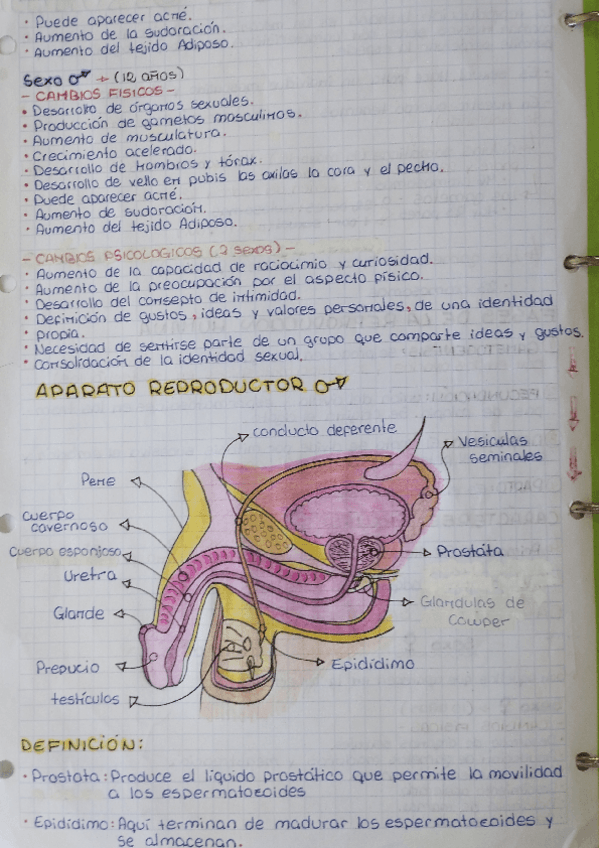 • Puede aparecer acné.
• Aumento de la sudoración.
• Aumento del tejido Adiposo.
Sexo ♂ → (12 años)
- CAMBIOS FISICOS -
• Desarrollo de órganos sexuales.
• Producción de gametos masculinos.
• Aumento de musculatura.
• Crecimiento acelerado.
• Desarrollo de Hombros y tórax.
• Desarrollo de vello en pubis las axilas la cara y el pecho.
• Puede aparecer acné.
• Aumento de sudoración.
• Aumento del tejido Adiposo.
- CAMBIOS PSICOLOGICOS (2 sexos) -
• Aumento de la capacidad de raciocinio y curiosidad.
• Aumento de la preocupación por el aspecto físico.
• Desarrollo del consepto de intimidad.
• Definición de gustos, ideas y valores personales, de una identidad
• propia.
• Necesidad de sentirse parte de un grupo que comparte ideas y gustos.
• consolidación de la identidad sexual.
APARATO REPRODUCTOR ♂
conducto deferente
Vesiculas
seminales
Pene
cuerpo
cavernoso
cuerpo esponjoso
Uretra
Prostata
Glande
Glandulas de
Cowper
Prepucio
Epididimo
testículos
DEFINICIÓN:
• Prostata: Produce el liquido prostático que permite la movilidad
a los espermatozoides
• Epididimo: Aquí terminan de madurar los espermatozoides y
se almacenan.